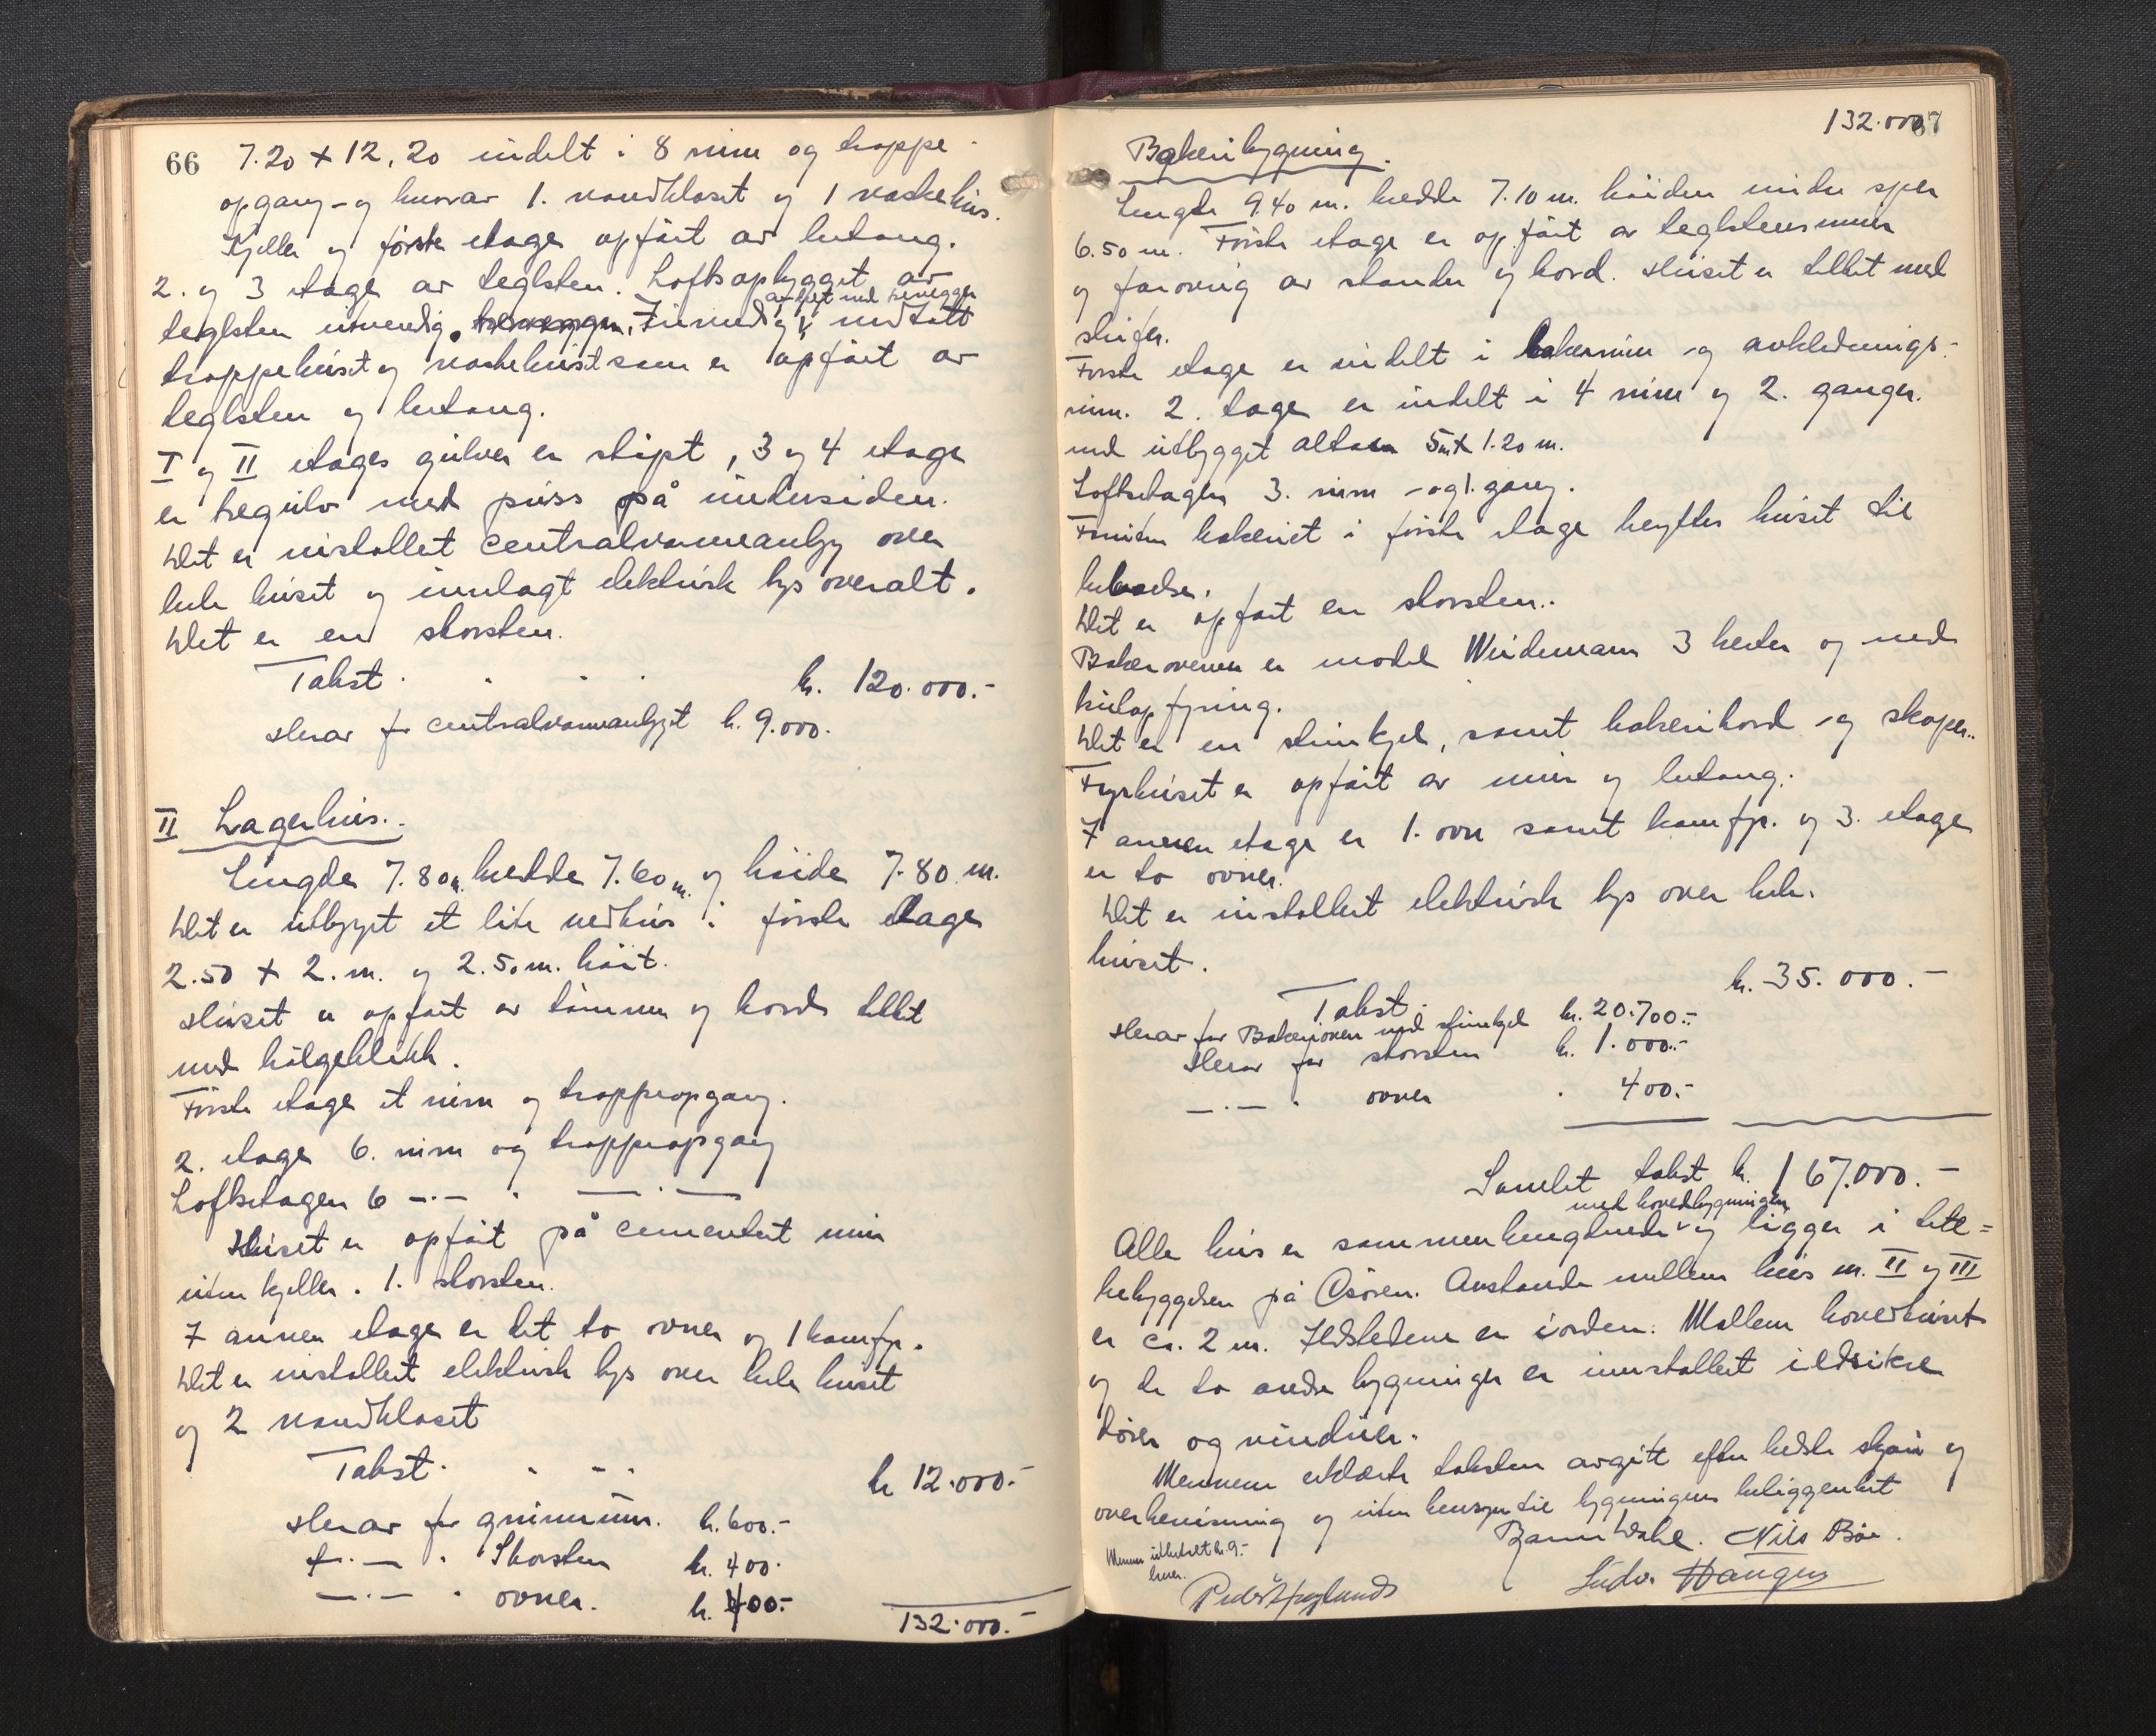 66 7.20 + 12,20 indelt i 8 rum og trappe-
opgang - og hvorav 1. vandkloset og 1 vaskehus.
Kjeller og første etage opført av betong.
2. og 3 etage av teglsten. Loftsopbygget av
avløst med trevegger
teglsten utvendig. Invendig undtatt
trappehuset og vaskehuset som er opført av
teglsten og betong.
I og II etages gulver er støpt, 3 og 4 etage
er tregulv med puss på undersiden.
Det er installert centralvarmeanlæg over
hele huset og innlagt elektrisk lys overalt.
Det er en skorsten.
Takst . . . . kr. 120.000.-
Herav for centralvarmeanlægget kr. 9.000.
II Lagerhus.
Lengde 7.80 m. bredde 7.60 m. og høide 7.80 m.
Det er utbygget et lite vedhus i første etage
2.50 + 2. m. og 2.50 m. høit.
Huset er opført av tømmer og bord tekket
med bølgeblikk.
Første etage et rum og trappeopgang.
2. etage 6. rum og trappeopgang
Loftsetagen 6 -.- . -.-
Huset er opført på cementert mur
uten kjeller. 1. skorsten.
I annen etage er det to ovner og 1 komfyr.
Det er installert elektrisk lys over hele huset
og 2 vandkloset
Takst . . . . kr 12.000.-
Herav for grunnmur. kr. 600.-
-.- . Skorsten kr. 400.
-.- . ovner. kr. 400.-
132.000.-
132.000 67
Bakeribygning.
Lengde 9.40 m. bredde 7.10 m. høiden under sper
6.50 m. Første etage er opført av teglstensmur
og forøvrig av stander og bord. Huset er tekket med
skifer.
Første etage er indelt i bakerrum og avklædnings-
rum. 2. etage er indelt i 4 rum og 2. ganger.
med utbygget altan 5 m + 1.20 m.
Loftsetagen 3. rum - og 1. gang.
Foruten bakeriet i første etage benyttes huset til
beboelse.
Det er opført en skorsten.
Bakerovnen er model Weidemann 3 herder og med
kulopfyring.
Det er en dampkjel, samt bakeribord og skaper.
Fyrhuset er opført av mur og betong.
I annen etage er 1. ovn samt komfyr. og 3. etage
er to ovner.
Det er installert elektrisk lys over hele
huset.
Takst . kr. 35.000.-
Herav for Bakeriovnen med dampkjel kr. 20.700.-
Herav for skorsten kr. 1.000.-
-.- . ovner . 400.-
Samlet takst kr. 167.000.-
med hovedbygningen
Alle hus er sammenhengende og ligger i tett=
bebyggelsen på Osøren. Avstande mellem hus nr. II og III
er ca. 2 m. Ildstedene er i orden. Mellem hovedhuset
og de to andre bygninger er innstallert ildsikre
dører og vinduer.
Mennene erklærte taksten avgitt efter beste skjøn og
overbevisning og uten hensyn til bygningens beliggenhet
Mennene utbetalt kr. 9.-
hver.
Bernt Dahl. Nils Bøe.
Peder Høglund Ludv. Haugen